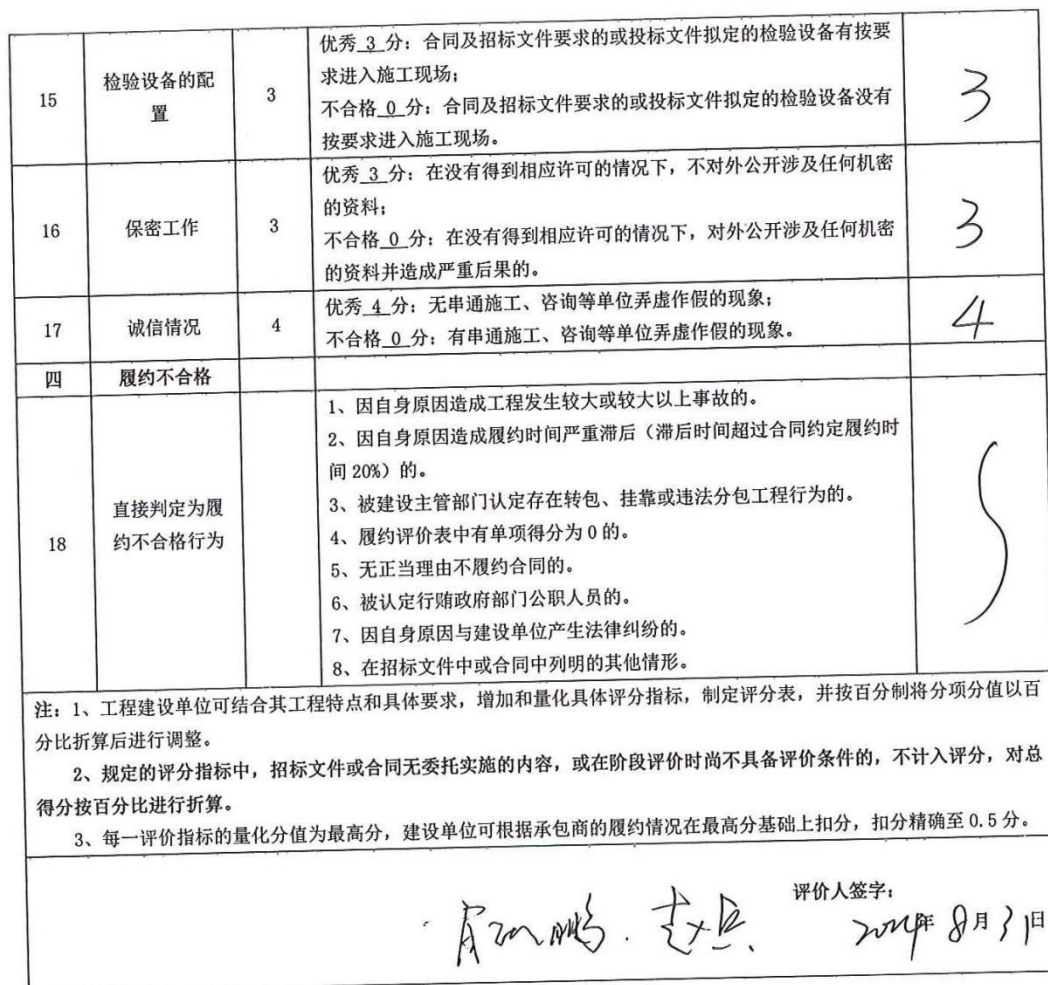 15 检验设备的配置 3 优秀 3 分：合同及招标文件要求的或投标文件拟定的检验设备有按要
求进入施工现场；
不合格 0 分：合同及招标文件要求的或投标文件拟定的检验设备没有
按要求进入施工现场。 3
16 保密工作 3 优秀 3 分：在没有得到相应许可的情况下，不对外公开涉及任何机密
的资料；
不合格 0 分：在没有得到相应许可的情况下，对外公开涉及任何机密
的资料并造成严重后果的。 3
17 诚信情况 4 优秀 4 分：无串通施工、咨询等单位弄虚作假的现象；
不合格 0 分：有串通施工、咨询等单位弄虚作假的现象。 4
四 履约不合格
18 直接判定为履约不合格行为 1、因自身原因造成工程发生较大或较大以上事故的。
2、因自身原因造成履约时间严重滞后（滞后时间超过合同约定履约时
间 20%）的。
3、被建设主管部门认定存在转包、挂靠或违法分包工程行为的。
4、履约评价表中有单项得分为 0 的。
5、无正当理由不履约合同的。
6、被认定行贿政府部门公职人员的。
7、因自身原因与建设单位产生法律纠纷的。
8、在招标文件中或合同中列明的其他情形。
注：1、工程建设单位可结合其工程特点和具体要求，增加和量化具体评分指标，制定评分表，并按百分制将分项分值以百
分比折算后进行调整。
2、规定的评分指标中，招标文件或合同无委托实施的内容，或在阶段评价时尚不具备评价条件的，不计入评分，对总
得分按百分比进行折算。
3、每一评价指标的量化分值为最高分，建设单位可根据承包商的履约情况在最高分基础上扣分，扣分精确至 0.5 分。
评价人签字：
2024年 8月 31日